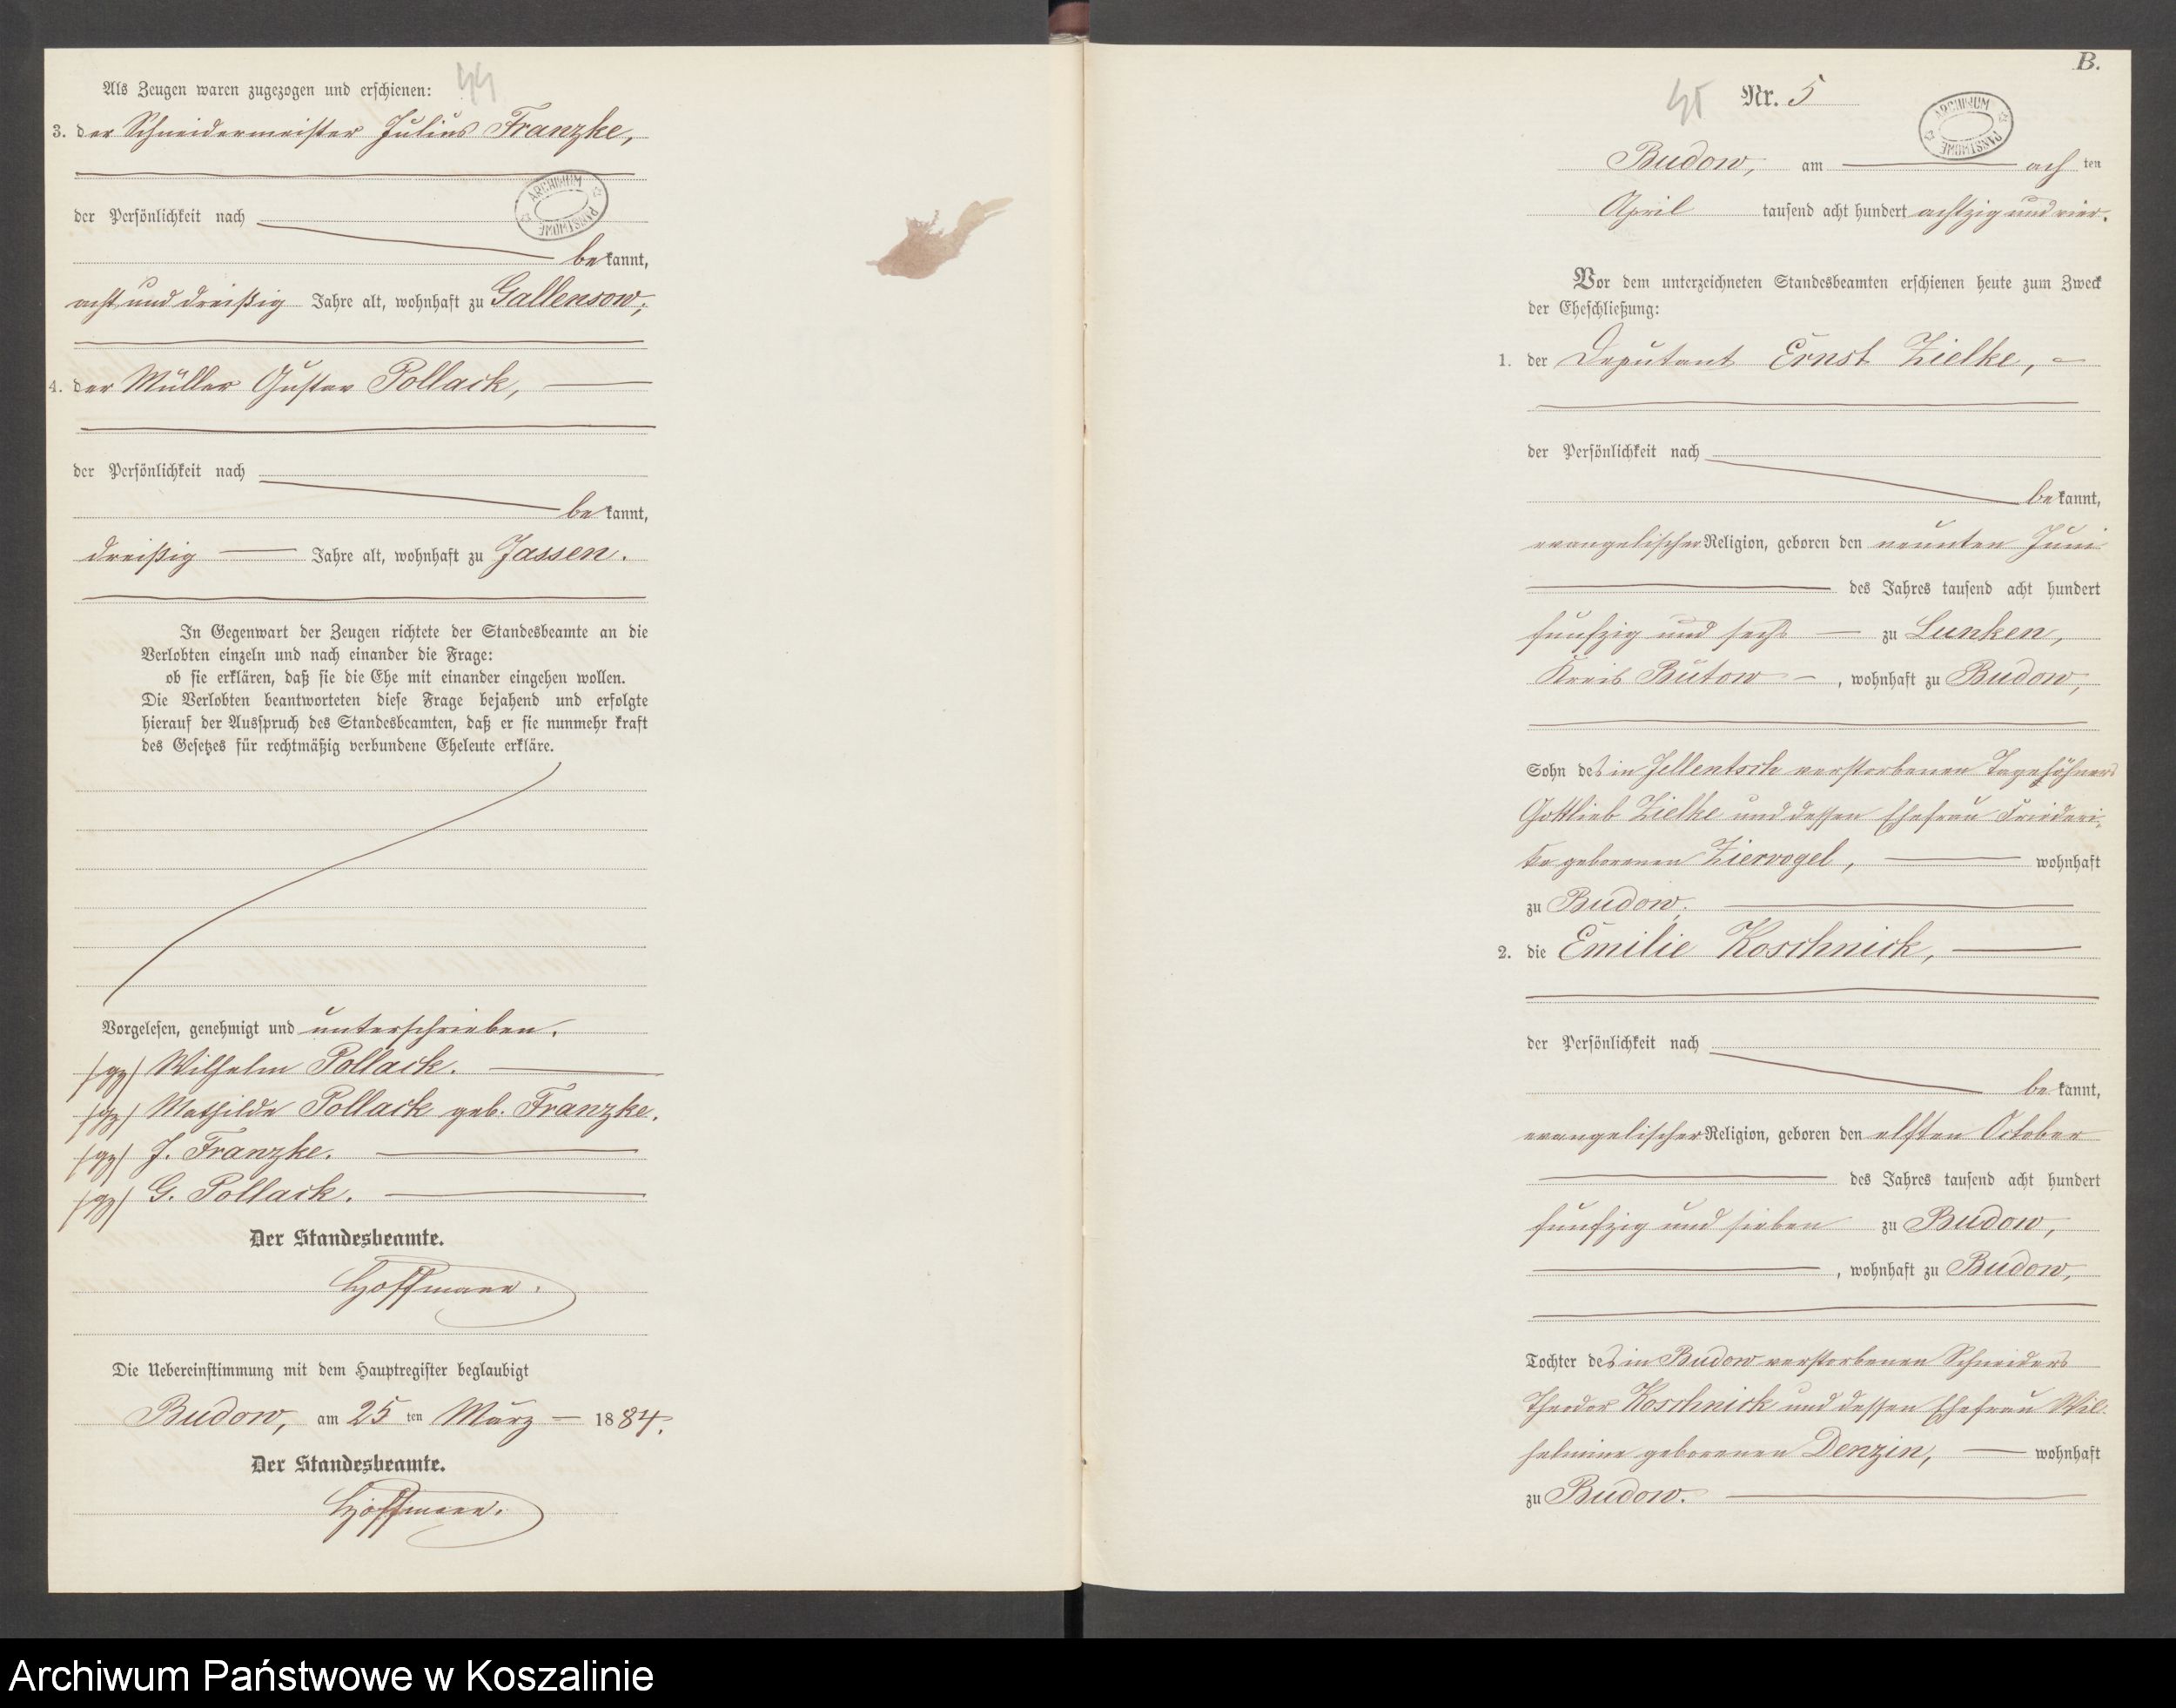 Als Zeugen waren zugezogen und erschienen:
44
3. der Schneidermeister Julius Franzke,
ARCHIWUM PAŃSTWOWE
der Persönlichkeit nach
bekannt,
acht und dreißig Jahre alt, wohnhaft zu Gallensow,
4. der Müller Gustav Pollack,
der Persönlichkeit nach
bekannt,
dreißig Jahre alt, wohnhaft zu Jassen.
In Gegenwart der Zeugen richtete der Standesbeamte an die
Verlobten einzeln und nach einander die Frage:
ob sie erklären, daß sie die Ehe mit einander eingehen wollen.
Die Verlobten beantworteten diese Frage bejahend und erfolgte
hierauf der Ausspruch des Standesbeamten, daß er sie nunmehr kraft
des Gesetzes für rechtmäßig verbundene Eheleute erkläre.
Vorgelesen, genehmigt und unterschrieben.
(gz) Wilhelm Pollack.
(gz) Mathilde Pollack geb. Franzke.
(gz) J. Franzke.
(gz) G. Pollack.
Der Standesbeamte.
Hoffmann.
Die Uebereinstimmung mit dem Hauptregister beglaubigt
Budow, am 25 ten März 1884.
Der Standesbeamte.
Hoffmann.
B.
45 Nr. 5
ARCHIWUM PAŃSTWOWE
Budow, am achten
April tausend acht hundert achtzig und vier.
Vor dem unterzeichneten Standesbeamten erschienen heute zum Zweck
der Eheschließung:
1. der Deputant Ernst Zielke,
der Persönlichkeit nach
bekannt,
evangelischer Religion, geboren den neunten Juni
des Jahres tausend acht hundert
fünfzig und sechs zu Lunken,
Kreis Bütow, wohnhaft zu Budow,
Sohn des in Jellentsch verstorbenen Tagelöhners
Gottlieb Zielke und dessen Ehefrau Friederi-
ke geborenen Ziervogel, wohnhaft
zu Budow.
2. die Emilie Koschnick,
der Persönlichkeit nach
bekannt,
evangelischer Religion, geboren den elften October
des Jahres tausend acht hundert
fünfzig und sieben zu Budow,
, wohnhaft zu Budow,
Tochter des in Budow verstorbenen Schneiders
Theodor Koschnick und dessen Ehefrau Wil-
helmine geborenen Denzin, wohnhaft
zu Budow.
Archiwum Państwowe w Koszalinie